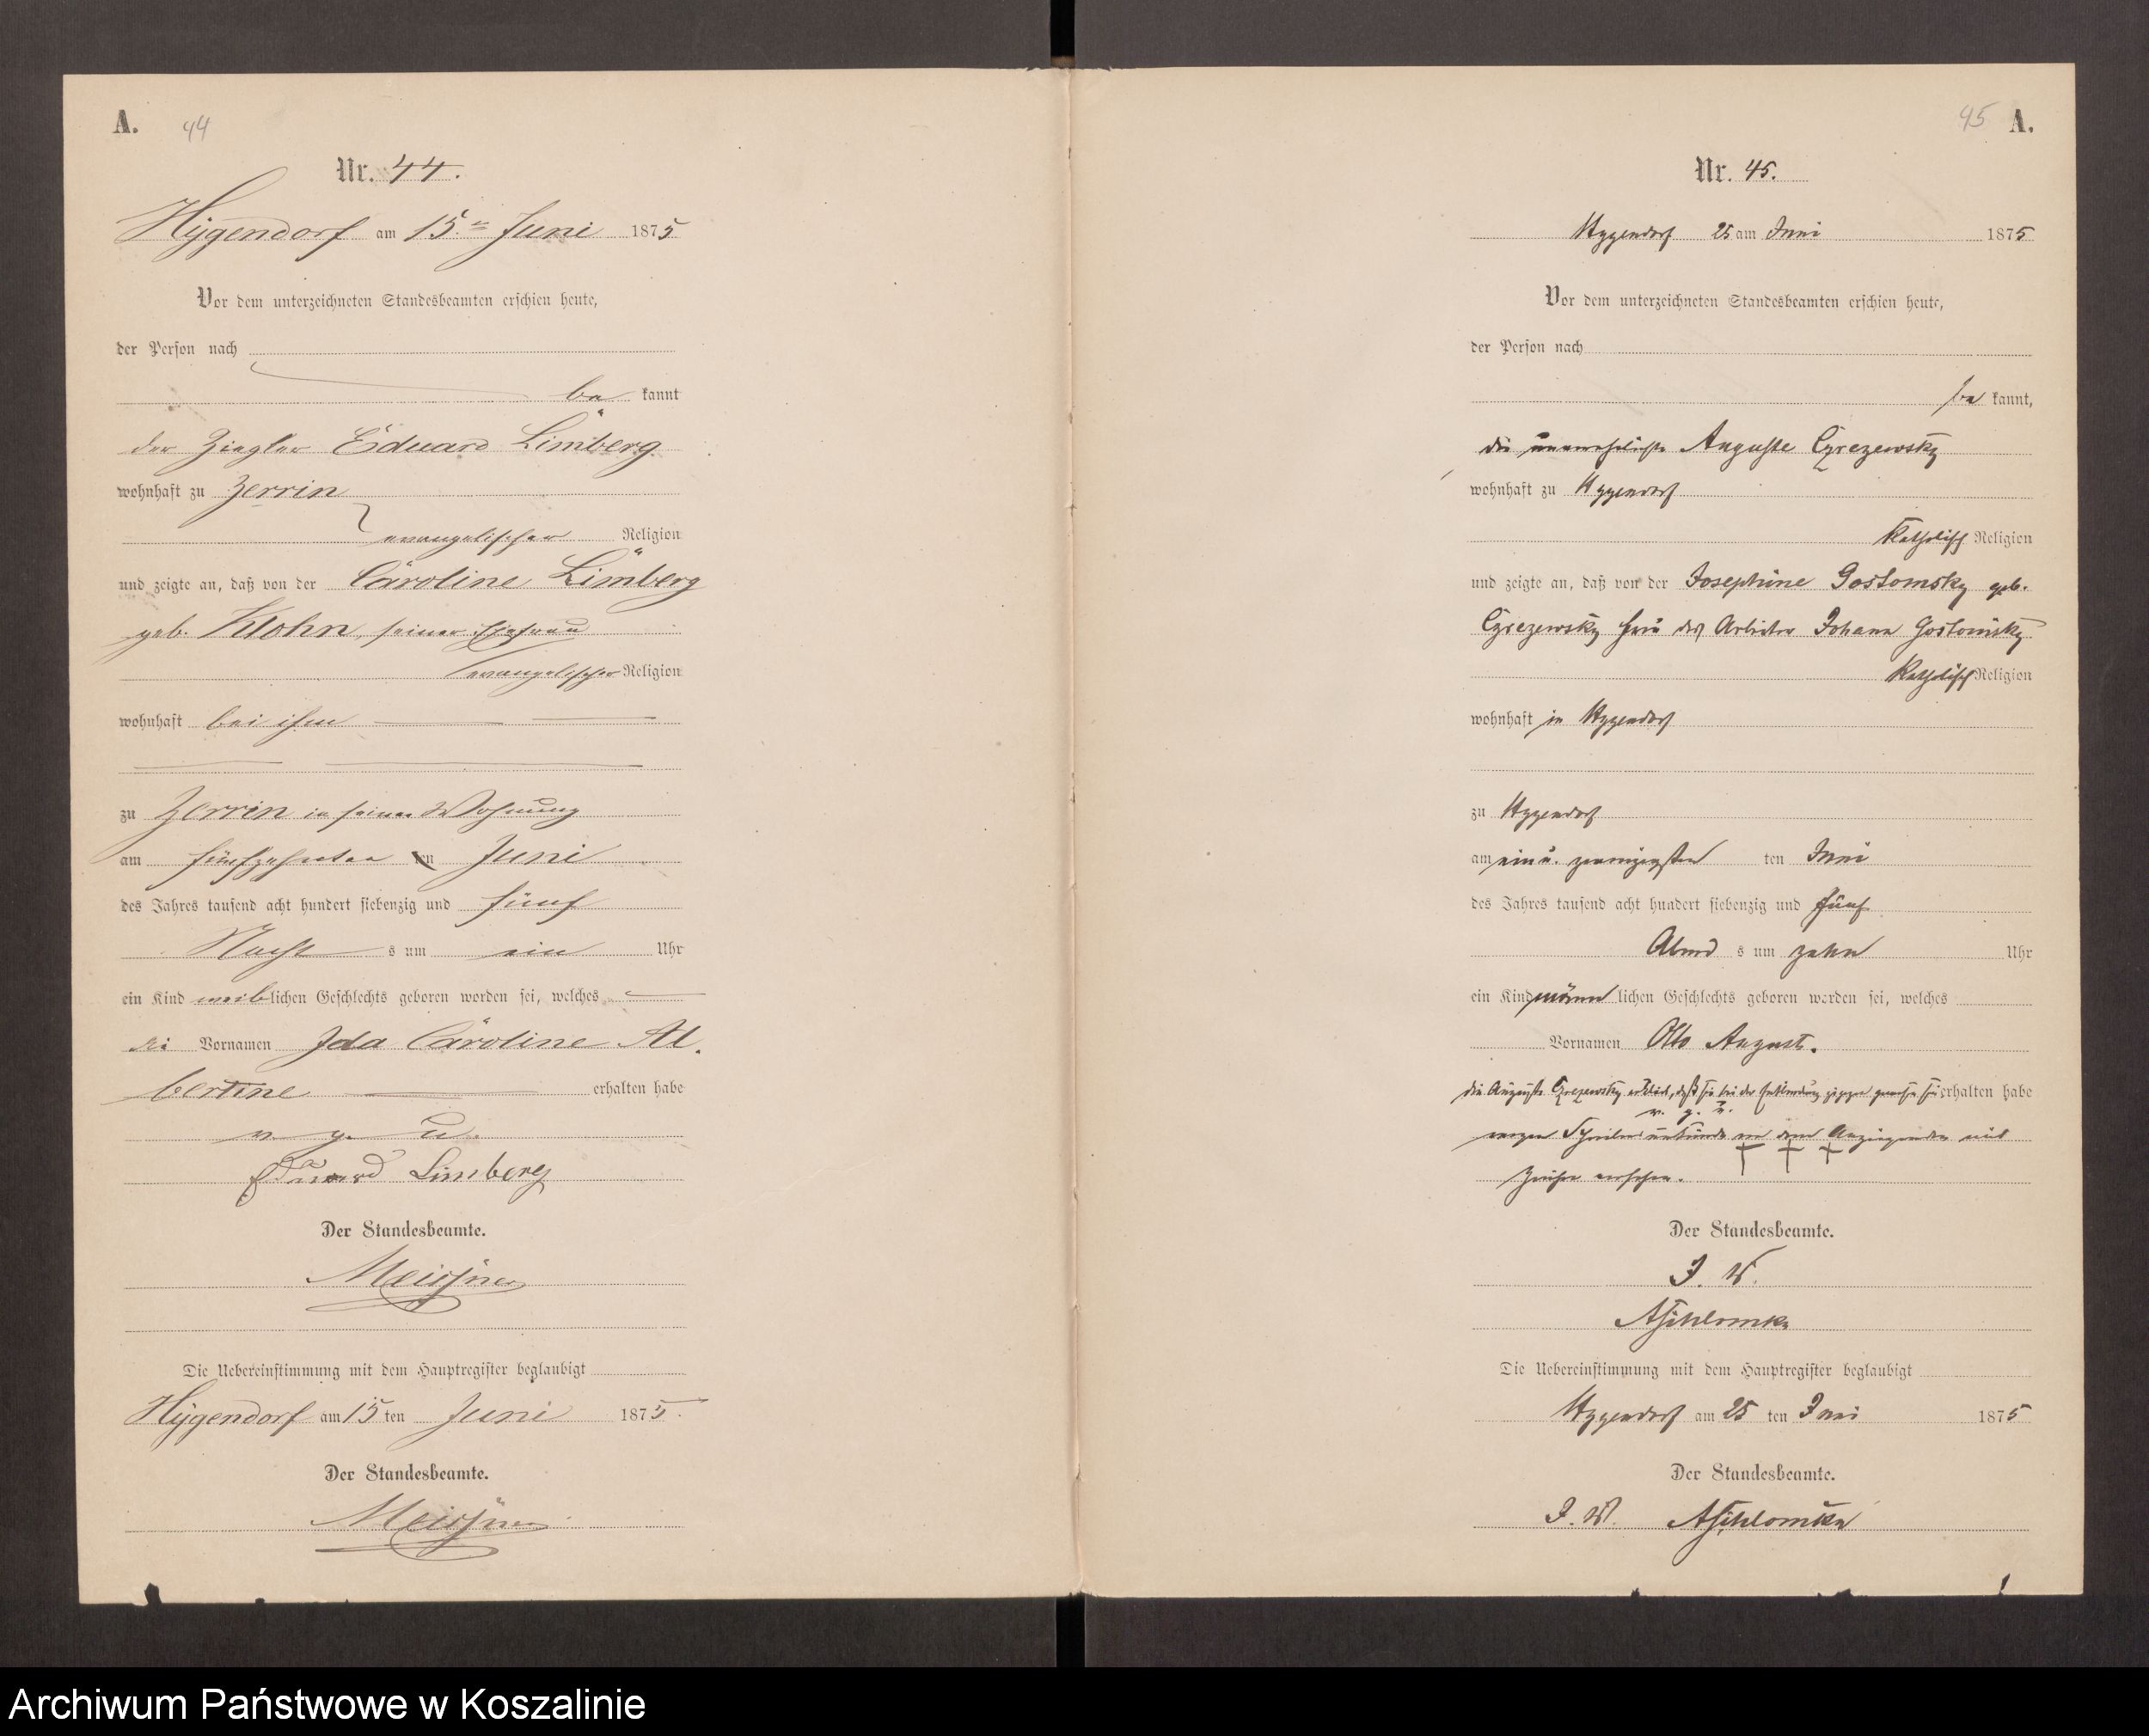 A. 44
Nr. 44.
Hygendorf am 15.ten Juni 1875
Vor dem unterzeichneten Standesbeamten erschien heute,
der Person nach
be kannt
der Ziegler Eduard Limberg
wohnhaft zu Zerrin
evangelischer Religion
und zeigte an, daß von der Caroline Limberg
geb. Klohn, seiner Ehefrau
evangelischer Religion
wohnhaft bei ihm
zu Zerrin in seiner Wohnung
am fünfzehnten ten Juni
des Jahres tausend acht hundert siebenzig und fünf
Nacht s um ein Uhr
ein Kind weiblichen Geschlechts geboren worden sei, welches
die Vornamen Ida Caroline Al.
bertine erhalten habe
v. g. u.
Eduard Limberg
Der Standesbeamte.
Meissner
Die Uebereinstimmung mit dem Hauptregister beglaubigt
Hygendorf am 15 ten Juni 1875.
Der Standesbeamte.
Meissner
45 A.
Nr. 45.
Hygendorf 25 am Juni 1875
Vor dem unterzeichneten Standesbeamten erschien heute,
der Person nach
be kannt,
die unverehelichte Auguste Cyrezewsky
wohnhaft zu Hygendorf
Katholisch Religion
und zeigte an, daß von der Josephine Gostomsky geb.
Cyrezewsky Frau des Arbeiter Johann Gostomsky
Katholisch Religion
wohnhaft in Hygendorf
zu Hygendorf
am ein u. zwanzigsten ten Juni
des Jahres tausend acht hundert siebenzig und fünf
Abend s um zehn Uhr
ein Kind männlichen Geschlechts geboren worden sei, welches
Vornamen Otto August.
die Auguste Cyrezewsky erklärt, daß sie bei der Entbindung zugegen gewesen sei erhalten habe
v. g. u.
wegen Schreibensunkunde von dem Anzeigenden mit
Zeichen versehen.
Der Standesbeamte.
I. V.
Die Uebereinstimmung mit dem Hauptregister beglaubigt
Hygendorf am 25 ten Juni 1875
Der Standesbeamte.
I. V.
Archiwum Państwowe w Koszalinie